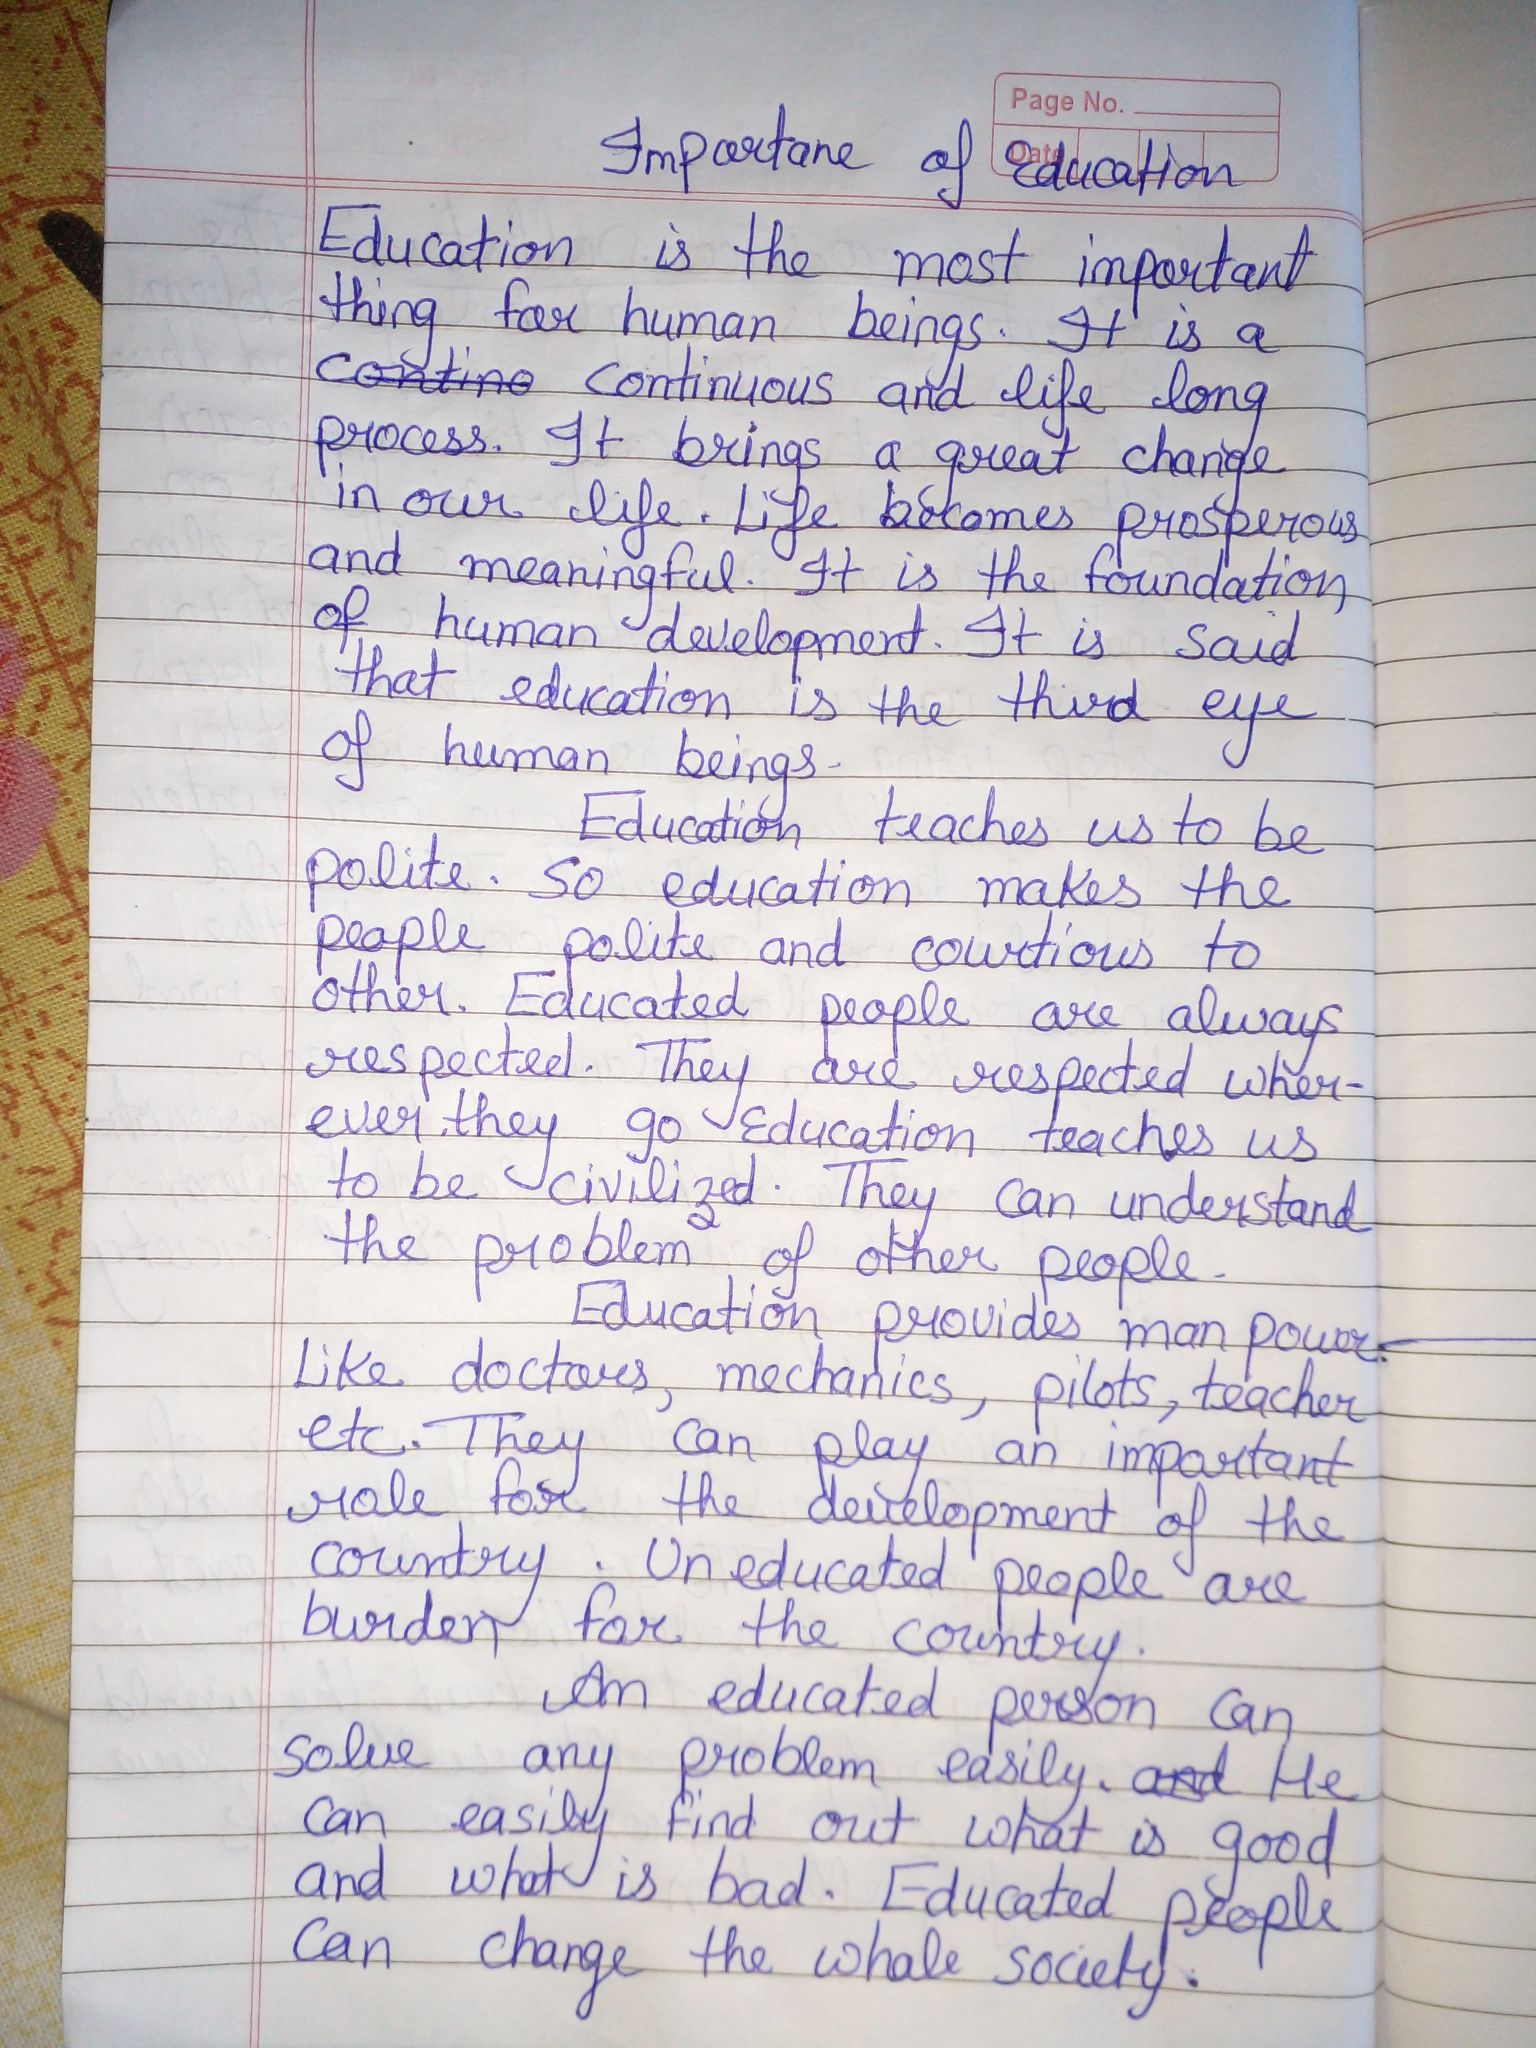 Page No.
Date
Importane of Education
Education is the most important
thing for human beings. It is a
contino continuous and life long
process. It brings a great change
in our life. Life becomes prosperous
and meaningful. It is the foundation
of human development. It is said
that education is the third eye
of human beings.
Education teaches us to be
polite. So education makes the
people polite and courtious to
other. Educated people are always
respected. They are respected wher-
ever they go Education teaches us
to be civilized. They can understand
the problem of other people.
Education provides man power.
Like doctors, mechanics, pilots, teacher
etc. They can play an important
role for the development of the
country. Uneducated people are
burden for the country.
An educated person can
solve any problem easily. and He
can easily find out what is good
and what is bad. Educated people
can change the whole society.